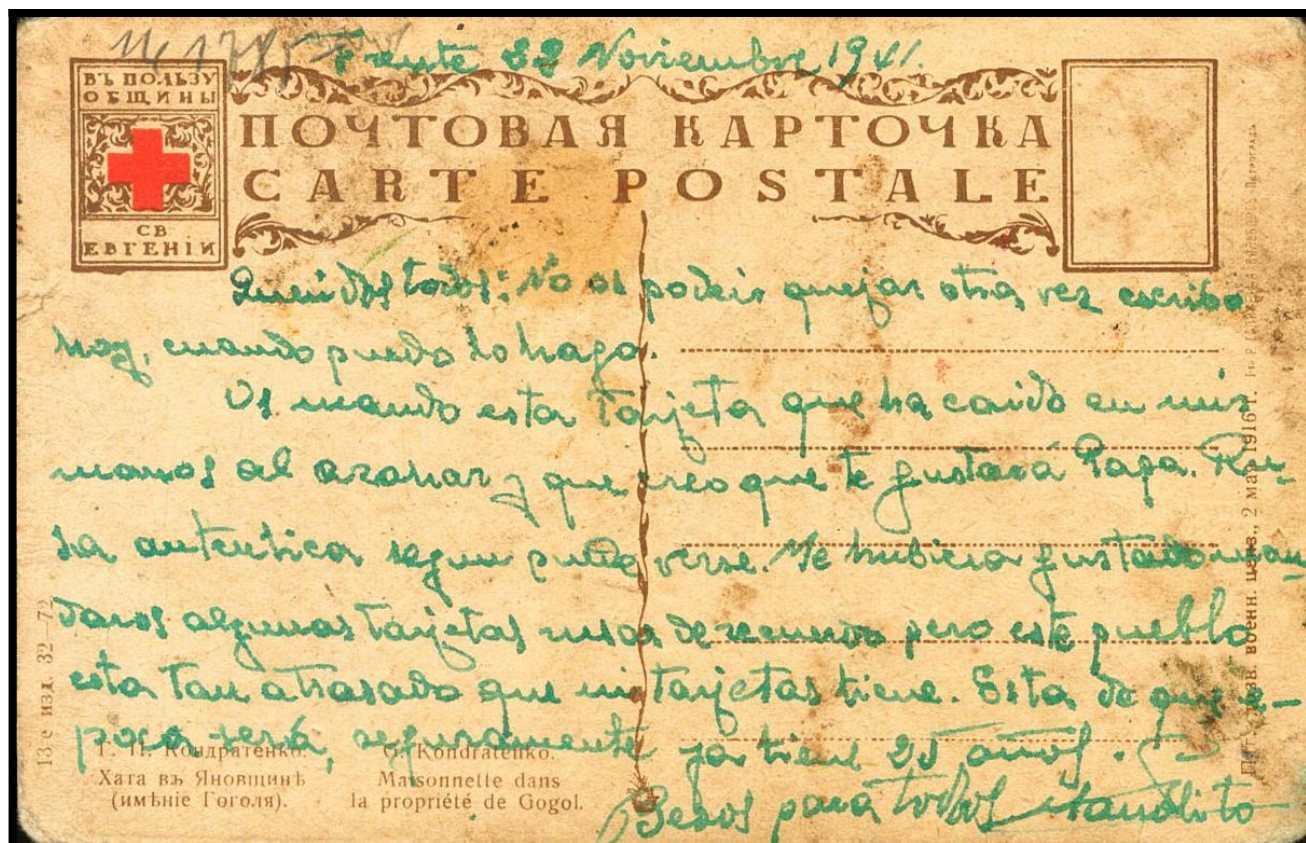 Frente 22 Noviembre 1941.
ВЪ ПОЛЬЗУ
ОБЩИНЫ
СВ
ЕВГЕНІИ
ПОЧТОВАЯ КАРТОЧКА
CARTE POSTALE
Queridos todos: No os podeis quejar otra vez escribo
hoy, cuando puedo lo hago.
Os mando esta Tarjeta que ha caido en mis
manos al azahar y que creo que te gustará Papa. Ru-
sa autentica segun puede verse. Me hubiera gustado man
daros algunas tarjetas rusas de recuerdo pero este pueblo
esta tan atrasado que ni tarjetas tiene. Esta de que e-
poca será, seguramente ya tiene 25 años.
Besos para todos Manolito
Г. П. Кондратенко.
Хата въ Яновщинѣ
(имѣніе Гоголя).
G. Kondratenko.
Maisonnette dans
la propriété de Gogol.
13-е изд. 32-72
воен. ценз., 2 Мар 1916 г.